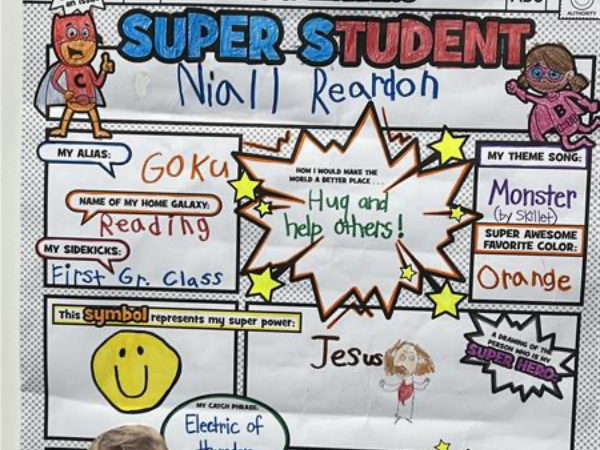 an Issue
AUTHORITY
SUPER STUDENT
C
B
Niall Reardon
MY ALIAS:
GOKU
NAME OF MY HOME GALAXY:
Reading
MY SIDEKICKS:
First Gr. Class
HOW I WOULD MAKE THE
WORLD A BETTER PLACE...
Hug and
help others!
MY THEME SONG:
Monster
(by Skillet)
SUPER AWESOME
FAVORITE COLOR:
Orange
This symbol represents my super power:
Jesus
A DRAWING OF THE
PERSON WHO IS MY
SUPER HERO:
MY CATCH PHRASE:
Electric of